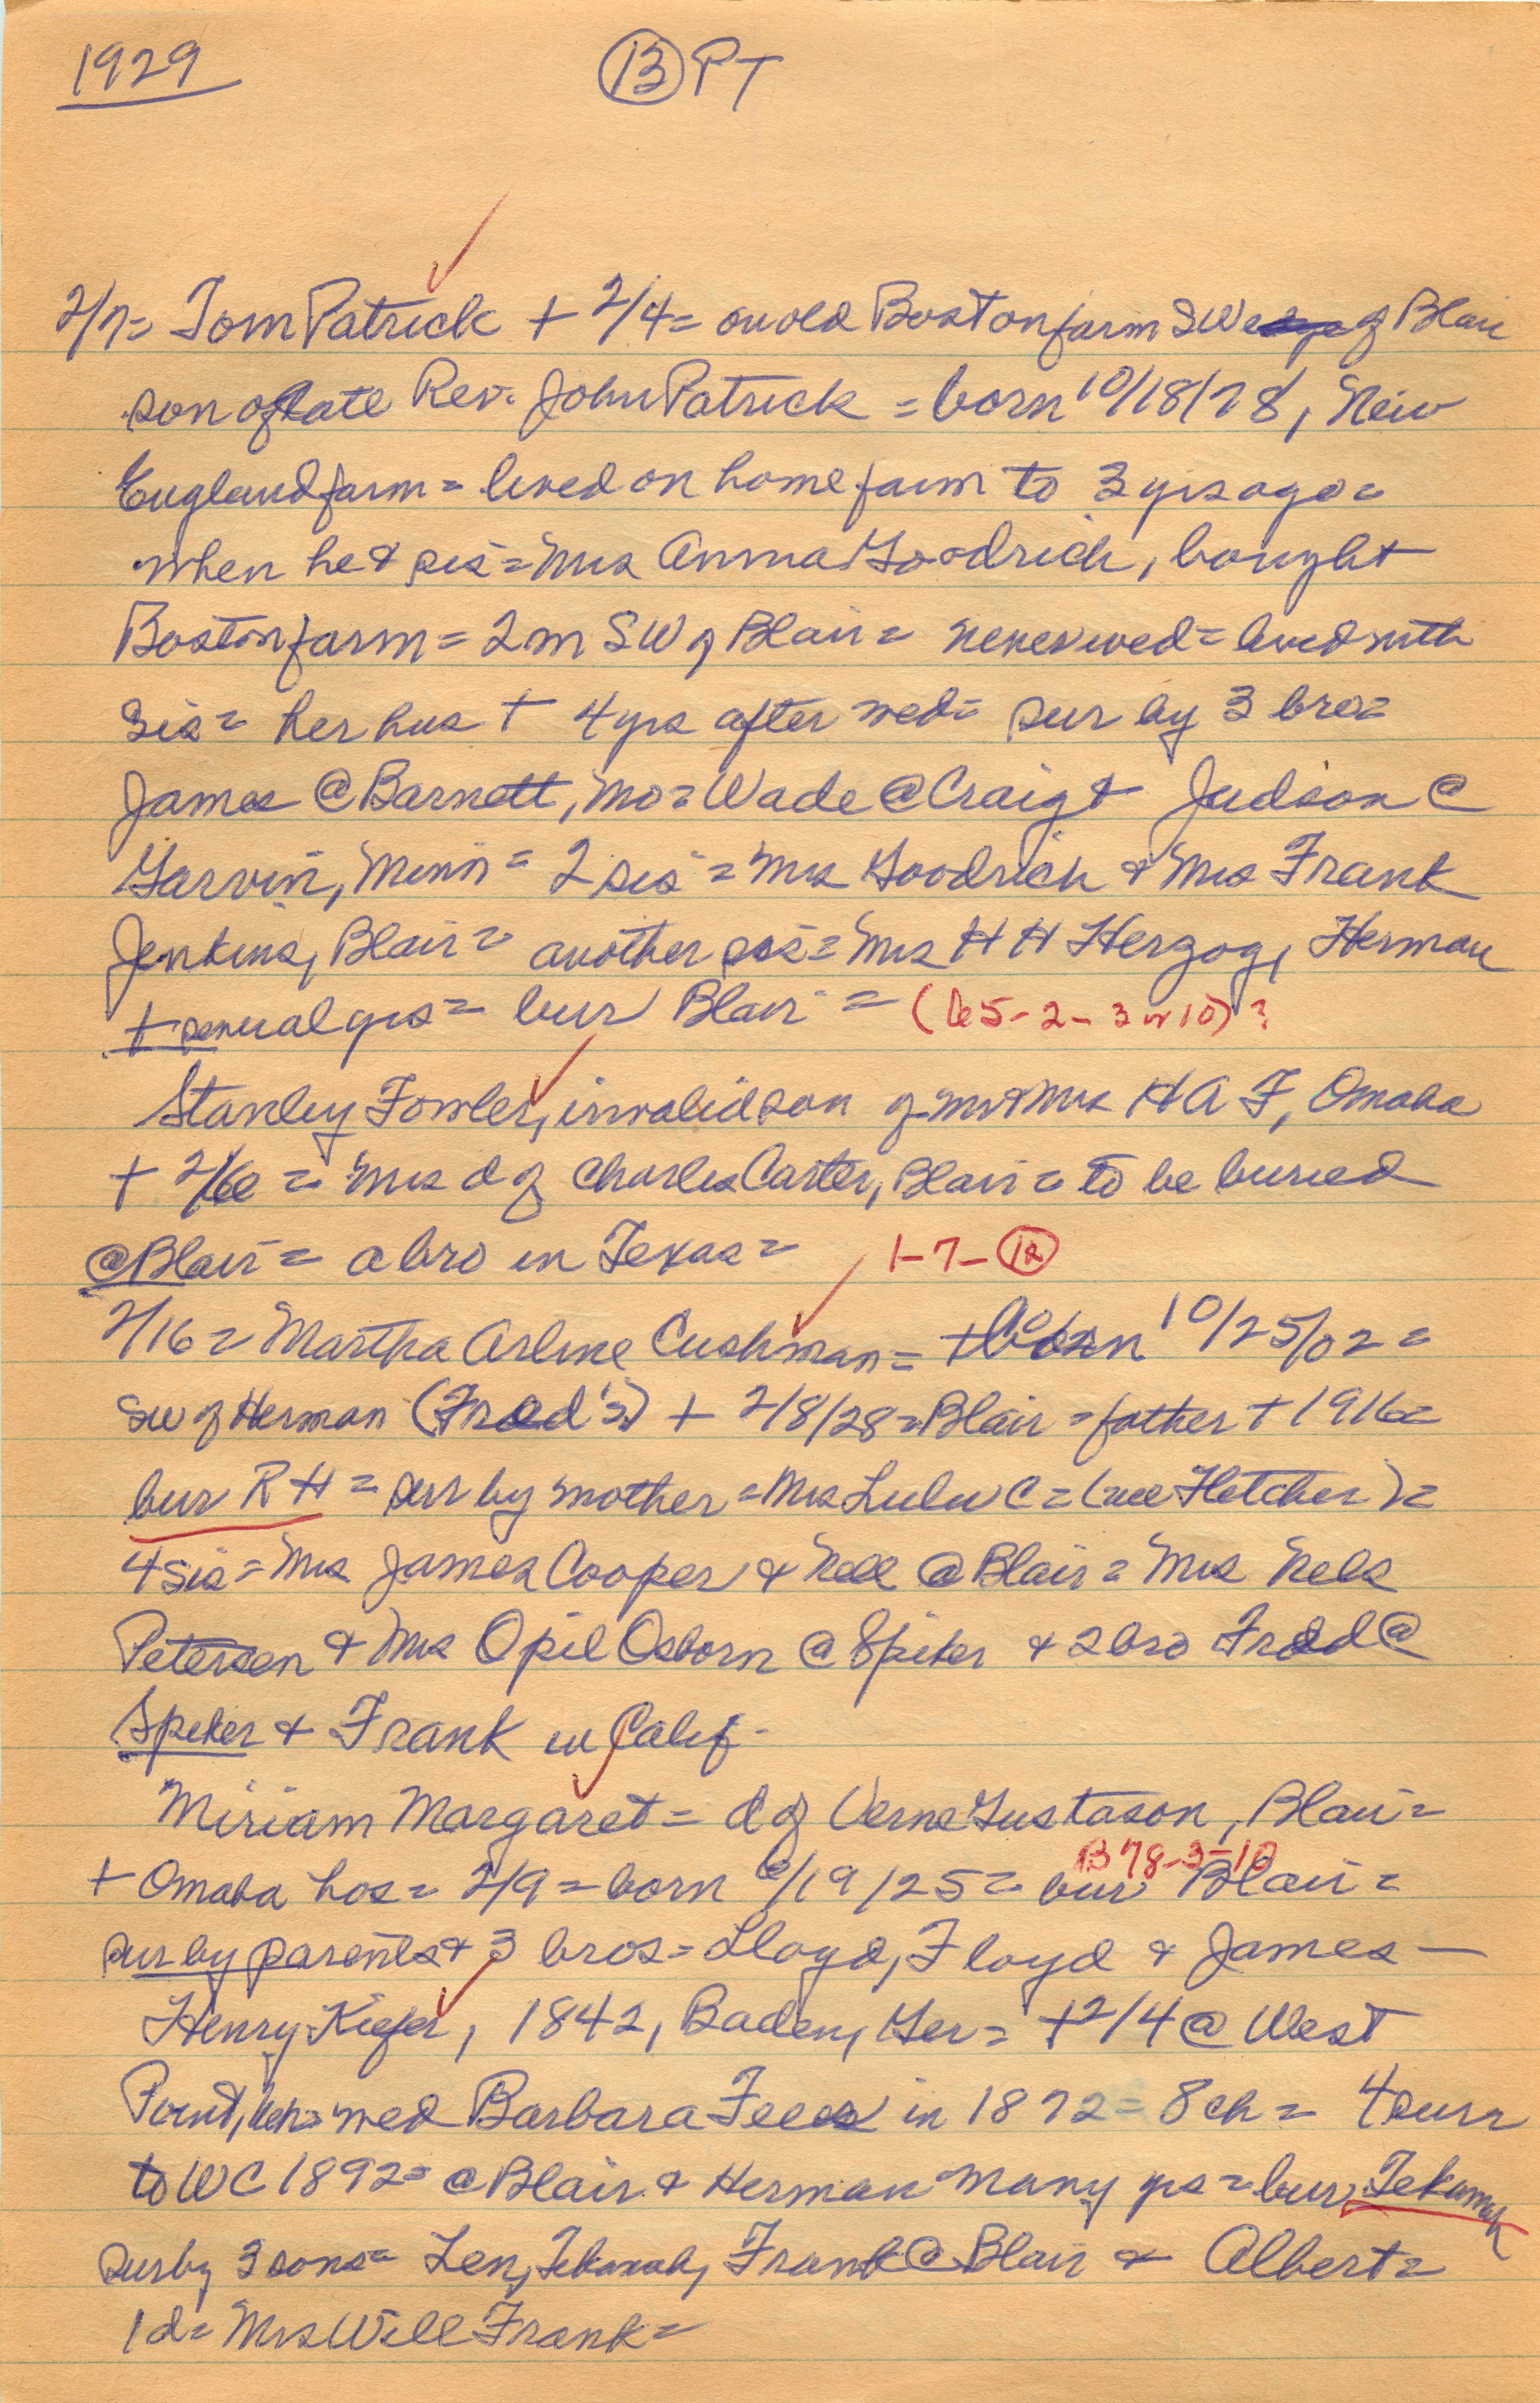 1929
(13) PT
2/7= Tom Patrick + 2/4= on old Boston farm SW of Blair
son of late Rev. John Patrick = born 10/18/78, New
England farm = lived on home farm to 3 yrs ago =
when he & sis = Mrs Anna Goodrich, bought
Boston farm = 2m SW of Blair = never wed = lived with
sis = her hus + 4 yrs after wed = sur by 3 bro =
James @ Barnett, Mo = Wade @ Craig & Judson @
Garvin, Minn = 2 sis = Mrs Goodrich & Mrs Frank
Jenkins, Blair = another sis = Mrs H H Herzog, Herman
+ several yrs = bur Blair = (65-2-3 or 10)?
Stanley Fowler, invalid son of Mr & Mrs H A F, Omaha
+ 2/6 = Mrs d of Charles Carter, Blair = to be buried
@ Blair = a bro in Texas = 1-7-(12)
2/16 = Martha Arline Cushman = born 10/25/02 =
SW of Herman (Fred's) + 2/8/28 = Blair = father + 1916 =
bur R H = sur by mother = Mrs Lulu C = (nee Fletcher) =
4 sis = Mrs James Cooper & Nell @ Blair = Mrs Nels
Petersen & Mrs Opil Osborn @ Spiker & 2 bro Fred @
Spiker & Frank in Calif-
Miriam Margaret = d of Verne Gustason, Blair =
B 78-3-10
+ Omaha hos = 2/9 = born 6/19/25 = bur Blair =
sur by parents & 3 bros = Lloyd, Floyd & James —
Henry Kiefer, 1842, Baden, Ger = + 2/4 @ West
Point, Neb = wed Barbara in 1872 = 8 ch = 4 surv
to WC 1892 = @ Blair & Herman many yrs = bur Tekamah
sur by 3 sons = Len, Tekamah, Frank @ Blair & Albert =
1 d = Mrs Will Frank =